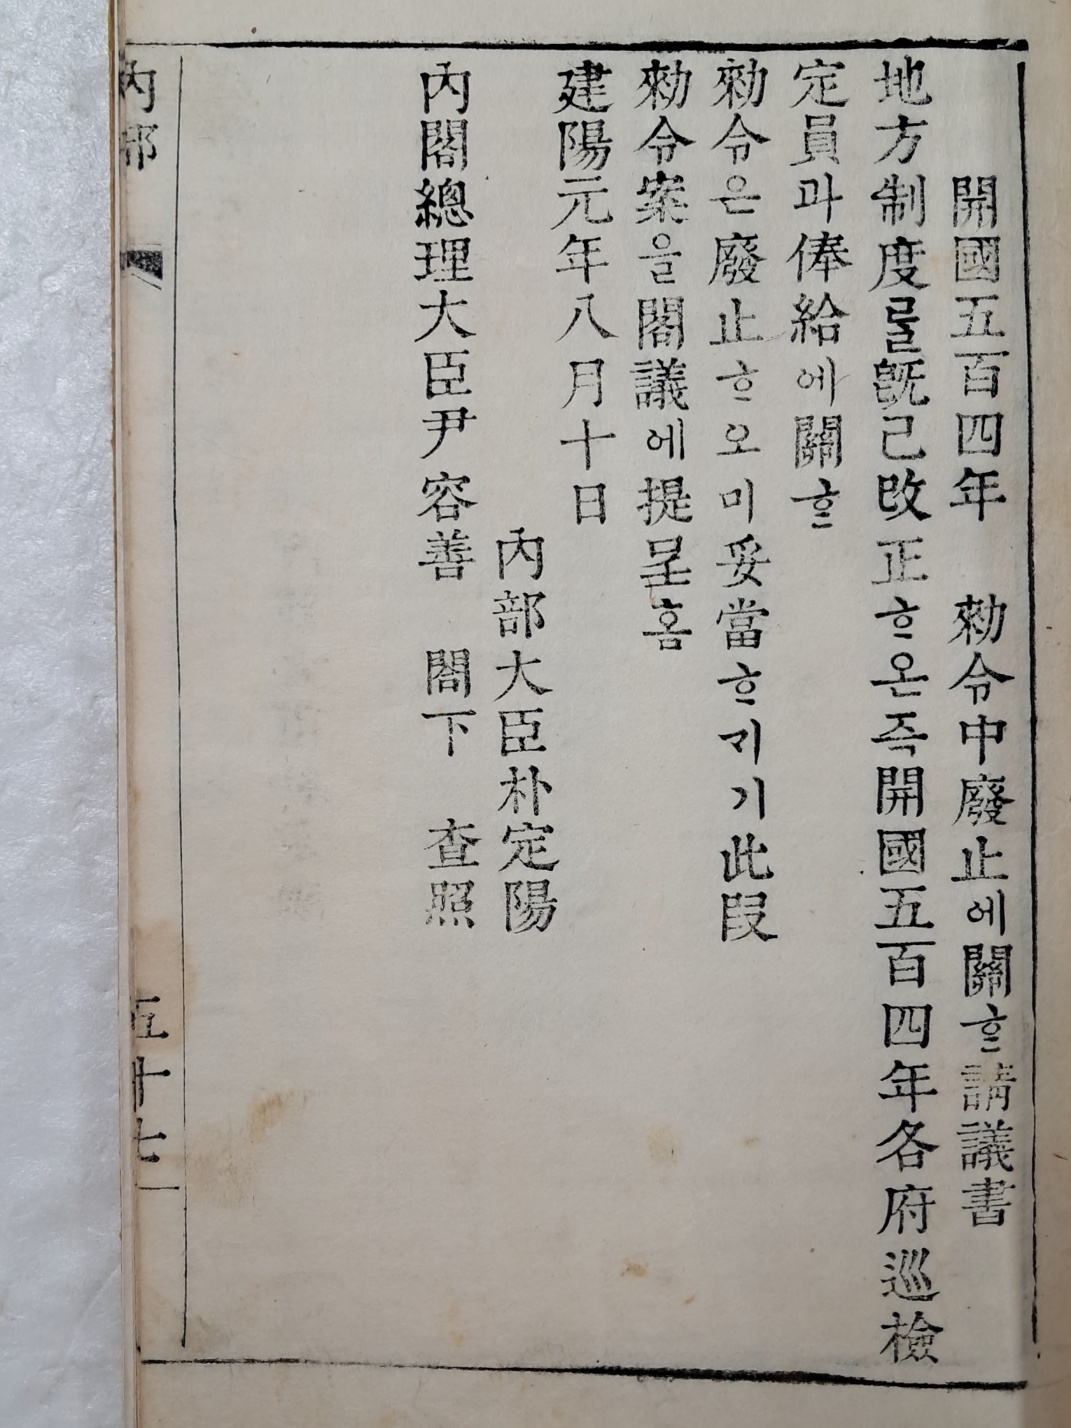 開國五百四年 勅令中廢止에關ᄒᆞᆫ請議書
地方制度ᄅᆞᆯ旣已改正ᄒᆞ온즉開國五百四年各府巡檢
定員과俸給에關ᄒᆞᆫ
勅令은廢止ᄒᆞ오미妥當ᄒᆞ기기此段
勅令案을閣議에提呈홈
建陽元年八月十日
內部大臣朴定陽
內閣總理大臣尹容善 閣下 查照
內部
五十七